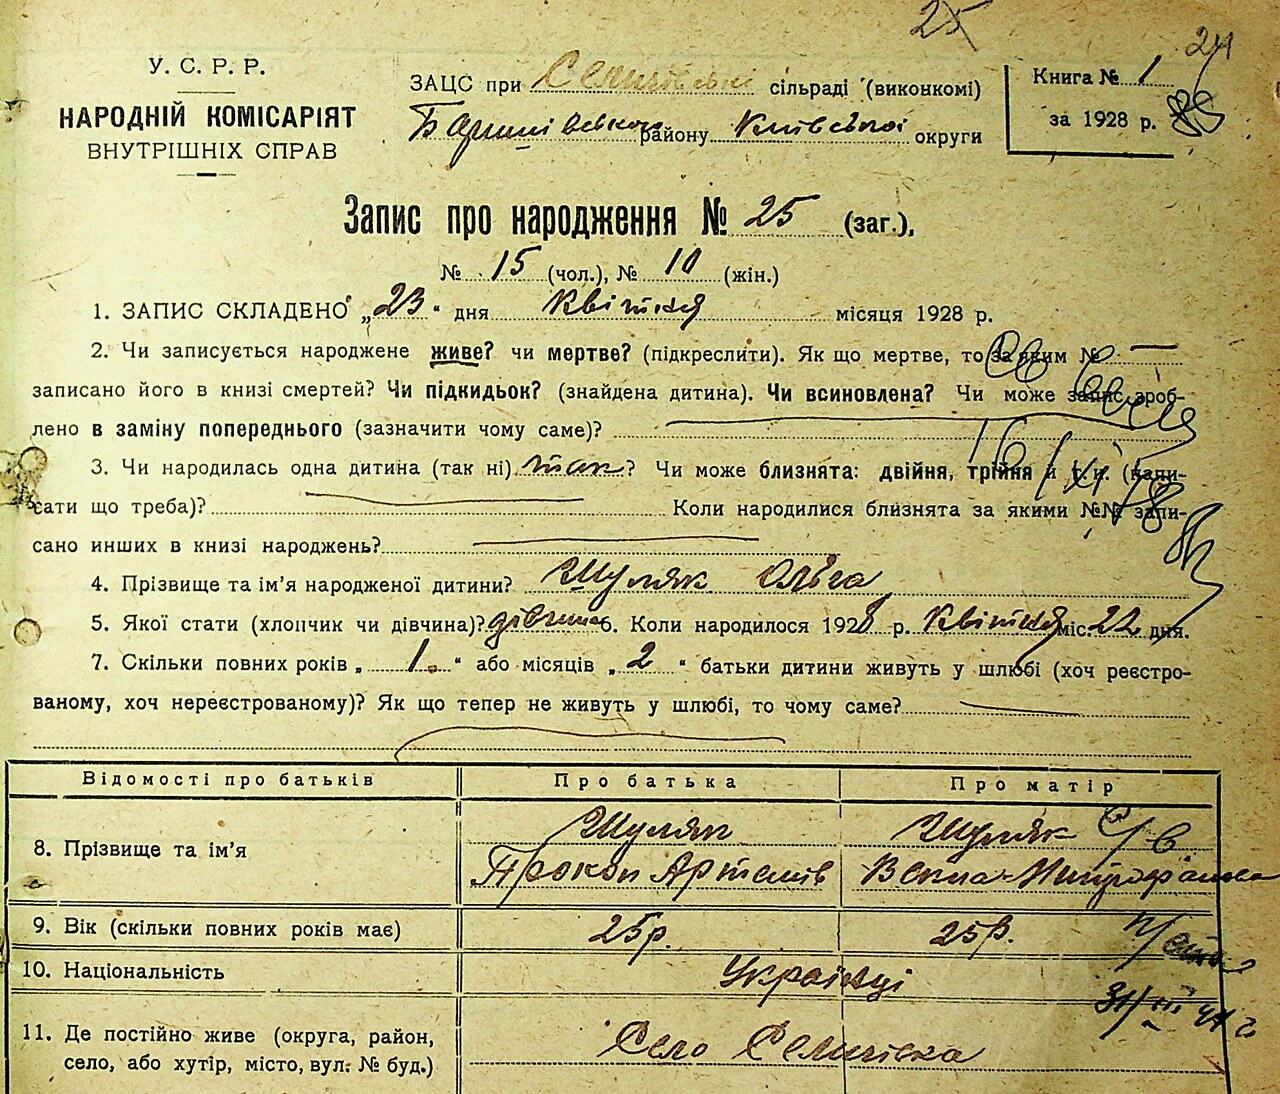 25
24
У. С. Р. Р.
НАРОДНІЙ КОМІСАРІЯТ
ВНУТРІШНІХ СПРАВ
ЗАЦС при Селичівській сільраді (виконкомі)
Баришівського району Київської округи
Книга № 1
за 1928 р.
88
Запис про народження № 25 (заг.),
№ 15 (чол.), № 10 (жін.)
1. ЗАПИС СКЛАДЕНО „23" дня Квітня місяця 1928 р.
2. Чи записується народжене живе? чи мертве? (підкреслити). Як що мертве, то за яким № —
записано його в книзі смертей? Чи підкидьок? (знайдена дитина). Чи всиновлена? Чи може запис зроб-
лено в заміну попереднього (зазначити чому саме)?
3. Чи народилась одна дитина (так ні) так? Чи може близнята: двійня, трійня й т. и. (напи-
сати що треба)? Коли народилися близнята за якими №№ запи-
сано инших в книзі народжень?
4. Прізвище та ім'я народженої дитини? Шуляк Ольга
5. Якої стати (хлопчик чи дівчина)? дівчина 6. Коли народилося 1928 р. Квітня міс. 22 дня.
7. Скільки повних років „1." або місяців „2" батьки дитини живуть у шлюбі (хоч реєстро-
ваному, хоч нереєстрованому)? Як що тепер не живуть у шлюбі, то чому саме?
Відомості про батьків Про батька Про матір
8. Прізвище та ім'я Шуляк Прокоп Артемів Шуляк Векла Митрофанова
9. Вік (скільки повних років має) 25р. 25р.
10. Національність Українці
11. Де постійно живе (округа, район,
село, або хутір, місто, вул. № буд.) Село Селичівка